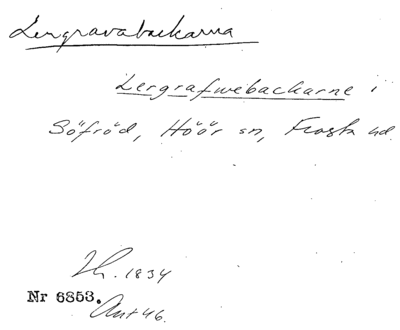 Lergravabackarna
Lergrafwebackarne i
Söfröd, Höör sn, Frosta hd.
Th. 1834
Nr 6853.
Ant 46.